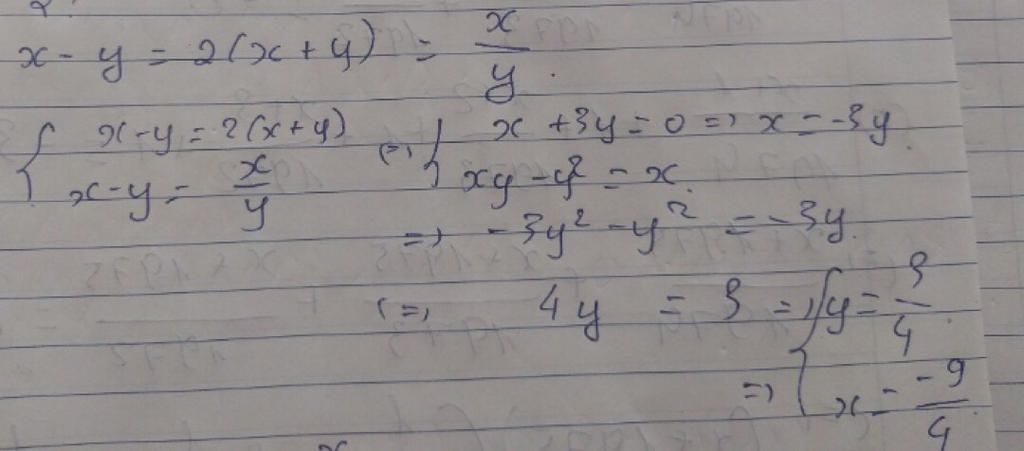 x - y = 2(x + y) = x/y.
{ x - y = 2(x + y) (=) { x + 3y = 0 => x = -3y.
x - y = x/y xy - y² = x.
=> -3y² - y² = -3y.
(=) 4y = 3 => { y = 3/4
=> x = -9/4